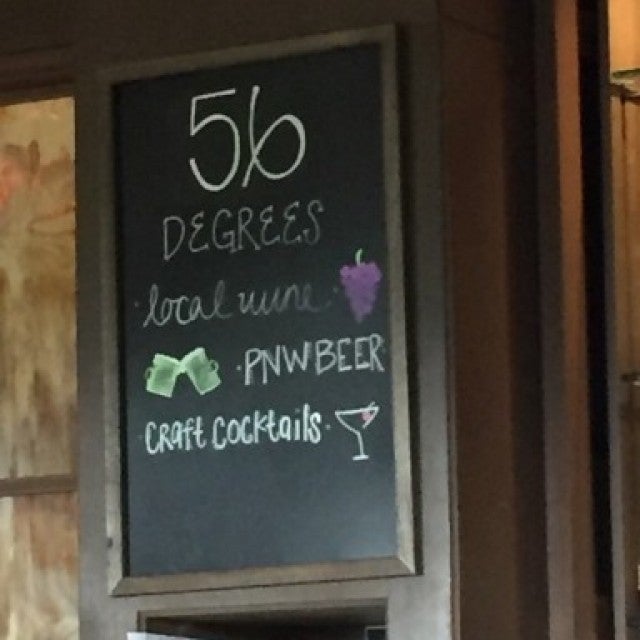 56
DEGREES
· local wine ·
· PNW BEER
· CRAFT COCKTAILS ·